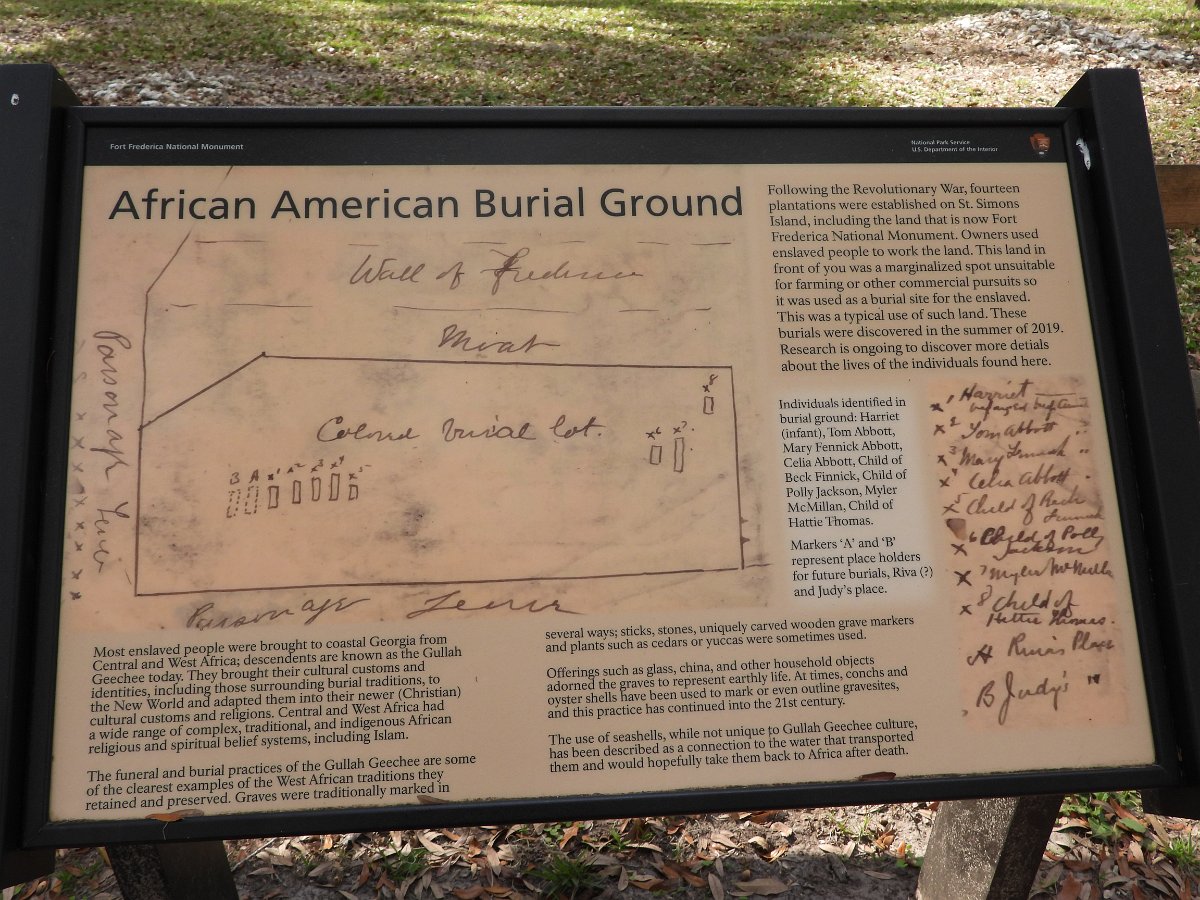 Fort Frederica National Monument
National Park Service
U.S. Department of the Interior
African American Burial Ground
Wall of Frederica
Moat
Colored burial lot.
Parsonage Fence
B A x1 x2 x3 x4 x5
x6 x7
x8
Parsonage Fence
Following the Revolutionary War, fourteen
plantations were established on St. Simons
Island, including the land that is now Fort
Frederica National Monument. Owners used
enslaved people to work the land. This land in
front of you was a marginalized spot unsuitable
for farming or other commercial pursuits so
it was used as a burial site for the enslaved.
This was a typical use of such land. These
burials were discovered in the summer of 2019.
Research is ongoing to discover more detials
about the lives of the individuals found here.
Individuals identified in
burial ground: Harriet
(infant), Tom Abbott,
Mary Fennick Abbott,
Celia Abbott, Child of
Beck Finnick, Child of
Polly Jackson, Myler
McMillan, Child of
Hattie Thomas.
Markers ‘A’ and ‘B’
represent place holders
for future burials, Riva (?)
and Judy's place.
x 1 Harriet
x 2 Tom Abbott "
x 3 Mary Fennick "
x 4 Celia Abbott "
x 5 Child of Beck
Fennick
x 6 Child of Polly
Jackson
x 7 Myler
x 8 Child of
Hettie Thomas.
A Place
B Judy's "
Most enslaved people were brought to coastal Georgia from
Central and West Africa; descendents are known as the Gullah
Geechee today. They brought their cultural customs and
identities, including those surrounding burial traditions, to
the New World and adapted them into their newer (Christian)
cultural customs and religions. Central and West Africa had
a wide range of complex, traditional, and indigenous African
religious and spiritual belief systems, including Islam.
The funeral and burial practices of the Gullah Geechee are some
of the clearest examples of the West African traditions they
retained and preserved. Graves were traditionally marked in
several ways; sticks, stones, uniquely carved wooden grave markers
and plants such as cedars or yuccas were sometimes used.
Offerings such as glass, china, and other household objects
adorned the graves to represent earthly life. At times, conchs and
oyster shells have been used to mark or even outline gravesites,
and this practice has continued into the 21st century.
The use of seashells, while not unique to Gullah Geechee culture,
has been described as a connection to the water that transported
them and would hopefully take them back to Africa after death.